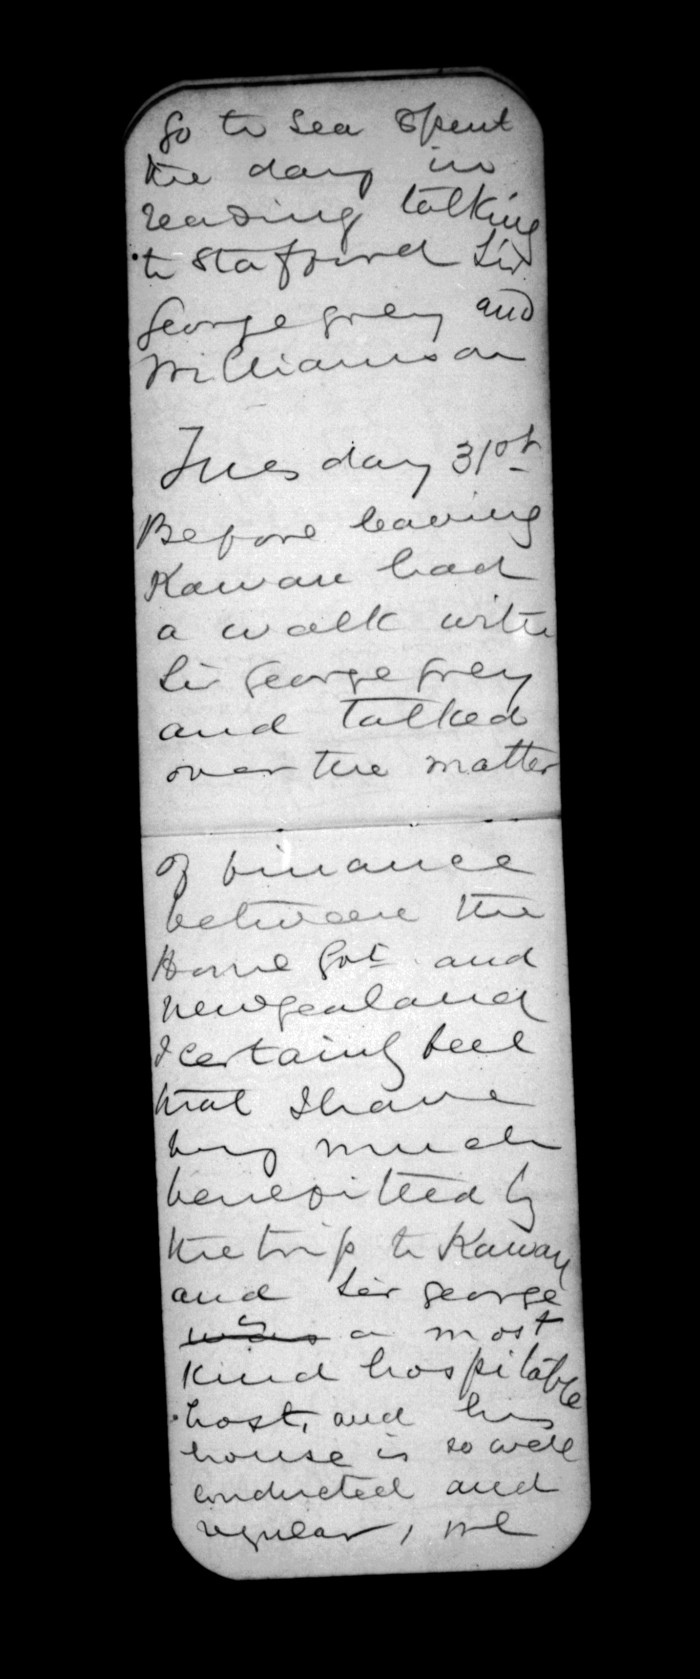 go to sea Spent
the day in
reading talking
to Stafford Sir
George Grey and
Williamson
Tuesday 31st
Before leaving
Kawau had
a walk with
Sir George Grey
and talked
over the matter
of finance
between the
Home Govt and
New Zealand
I certainly feel
that I have
very much
benefitted by
the trip to Kawau
and Sir George
was is a most
kind hospitable
host, and his
house is so well
conducted and
regular, we